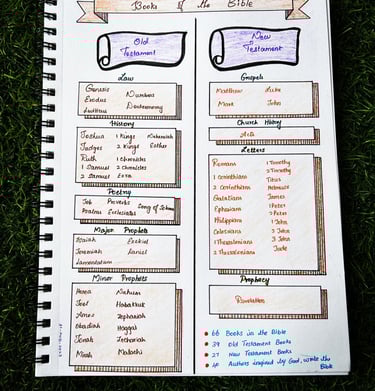 Books of the Bible
Old
Testament
New
Testament
Law
Genesis
Exodus Numbers
Leviticus Deuteronomy
History
Joshua 1 Kings Nehemiah
Judges 2 Kings Esther
Ruth 1 Chronicles
1 Samuel 2 Chronicles
2 Samuel Ezra
Poetry
Job Proverbs Song of
Psalms Ecclesiastes
Major Prophets
Isaiah Ezekiel
Jeremiah Daniel
Lamentation
Minor Prophets
Hosea Nahum
Joel Habakkuk
Amos Zephaniah
Obadiah Haggai
Jonah Zechariah
Micah Malachi
Gospels
Matthew Luke
Mark John
Church History
Acts
Letters
Romans 1 Timothy
2 Timothy
1 Corinthians Titus
2 Corinthians Hebrews
Galatians James
Ephesians 1 Peter
2 Peter
Philippians 1 John
Colossians 2 John
1 Thessalonians 3 John
2 Thessalonians Jude
Prophecy
Revelation
66 Books in the Bible
39 Old Testament Books
27 New Testament Books
40 Authors inspired by God, wrote the
Bible